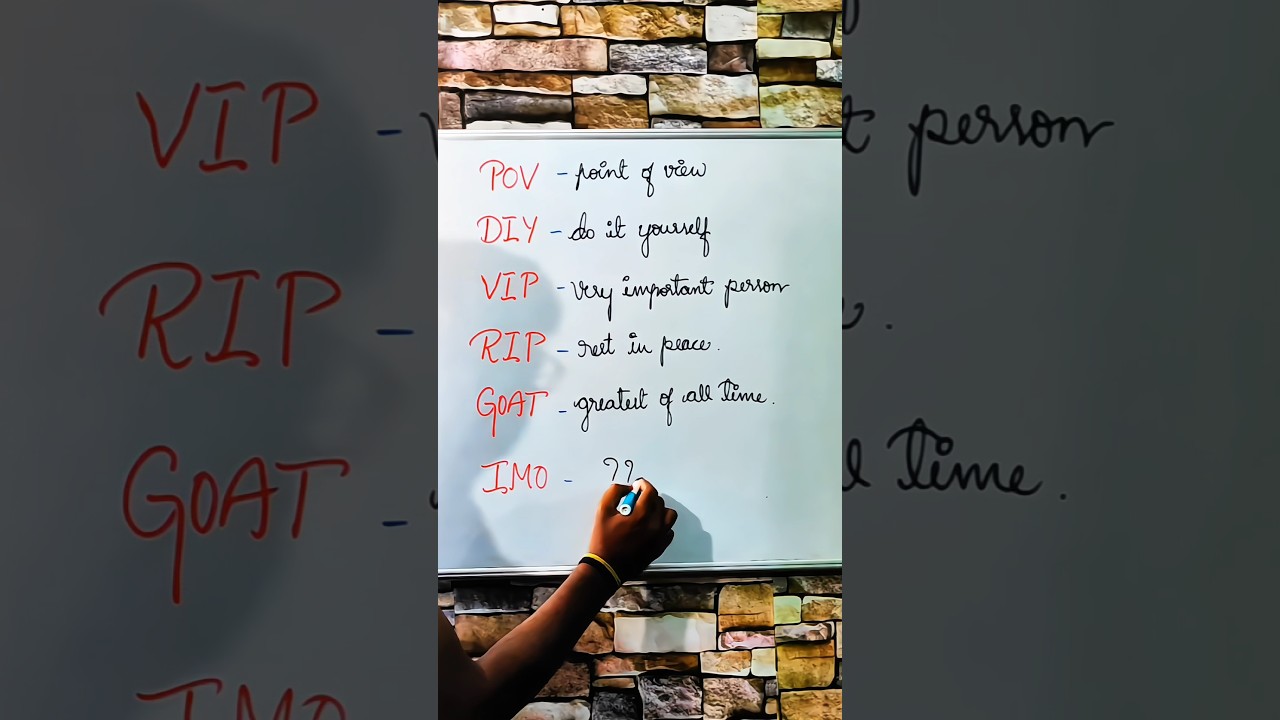 POV - point of view
DIY - do it yourself
VIP - very important person
RIP - rest in peace.
GOAT - greatest of all time.
IMO - ??